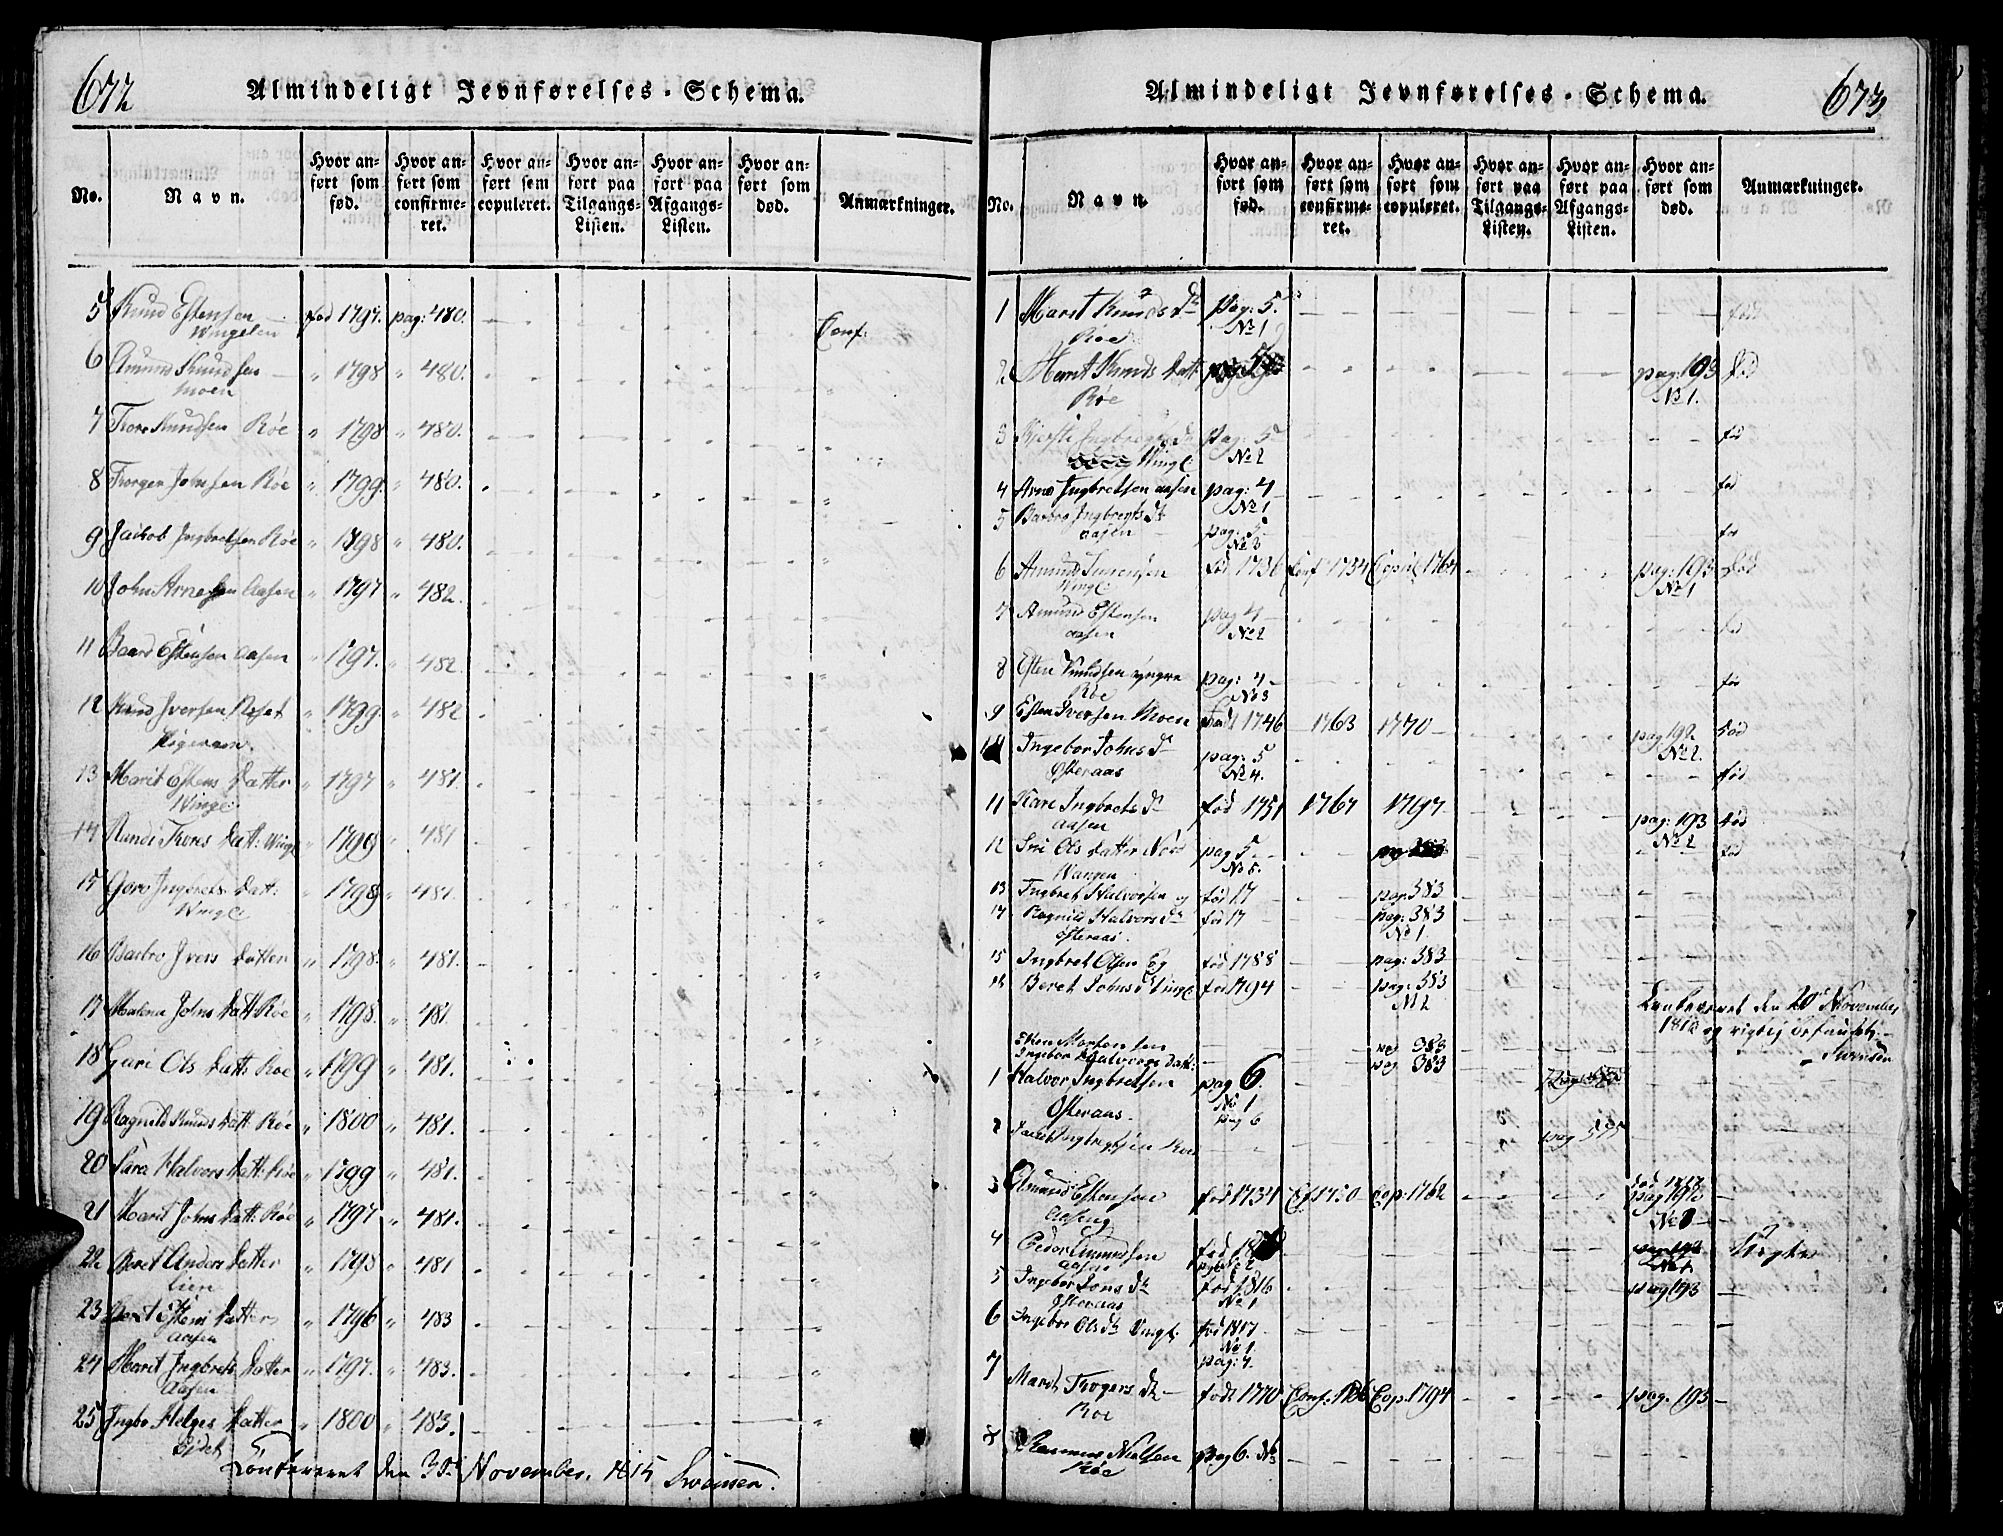 672
Almindeligt Jevnførelses-Schema.
No. Navn. Hvor anført som fød. Hvor anført som confirmeret. Hvor anført som copuleret. Hvor anført paa Tilgangs-Listen. Hvor anført paa Afgangs-Listen. Hvor anført som død. Anmærkninger.
5 Knud Estensen fød 1797. pag: 480.
Wingelen Conf:
6 Amund Knudsen " 1798 " 480.
Moen
7 Tore Knudsen Røe " 1798 " 480.
8 Trorger Johnsen Røe " 1799. " 480.
9 Jackob Ingbretsen Røe " 1798 " 480.
10 John Arnesen Aasen " 1797 " 482.
11 Baard Estensen Aasen " 1797. " 482.
12 Knud Iversen Roset " 1799. " 482
13 Marit Estens Datter " 1797 " 481.
Winge
14 Randi Thores Datt: Winge " 1799 " 481
15 Goro Ingbrets Datt: " 1798 " 481.
Wingel
16 Barbro Ivers Datter " 1798. " 481.
17 Malena Johns Datt: Røe " 1798. " 481.
18 Guri Ols Datt: Roe " 1799 " 481.
19 Ragnild Knuds Datt: Røe " 1800 " 481.
20 Sara Halvors Datt: Røe " 1799 " 481.
21 Marit Johns Datt: Røe " 1797 " 481.
22 Beret Anders Datter " 1795 " 481
Lien
23 Beret Estens Datter " 1796 " 483
Aasen
24 Marit Ingbrets Datter " 1797. " 483.
Aasen
25 Ingbor Helges Datter " 1800 " 483.
Eidet
Conf⁠ereret den 30te November 1815 Svensen.
673
Almindeligt Jevnførelses-Schema.
No. Navn. Hvor anført som fød. Hvor anført som confirmeret. Hvor anført som copuleret. Hvor anført paa Tilgangs-Listen. Hvor anført paa Afgangs-Listen. Hvor anført som død. Anmærkninger.
1 Marit Knuds Dr pag: 5. fød
Røe No 1
2 Marit Knuds Datt pag: 193 død
Røe No 1.
3 Kirsti Ingbregts Dr pag: 5 fød
Wingl: No 2
4 Arne Ingbretsen Aasen pag: 4 fød
No 1
5 Barbro Ingbregts Dr pag: 5 fød
Aasen No 3
6 Amund Svensen fød 1736 Conf 1754 Copul 1764 pag: 193 død
Wingl: No 1
7 Amund Estensen pag 4 fød
Aasen No 2
8 Esten Knudsen yngre pag: 4 fød
Røe No 3
9 Esten Iversen Moen født 1746 1763 1770 pag 192 død
No 2.
10 Ingebor Johns Dr pag: 5 fød
Østeraas No 4.
11 Kari Ingbrets Dr fød 1751 1767 1797 pag: 193 død
Aasen No 2
12 Siri Ols Datter Nord pag 5. fød
Wangen No 5.
13 Ingbret Halvorsen og fød 17 pag. 383
14 Ragnild Halvors Dr fød 17 pag: 383
Østeraas. No 1.
15 Ingbret Olsen Eg fød 1788 pag: 383
16 Beret Johns Dr Vingl fød 1794 pag: 383
No 2
Conf⁠ereret den 20de November
181 og rigtig befundet.
Svensen
Esten Mortensen pag 383
Ingebor Halvors Datt: pag 383
1 Halvor Ingbretsen pag 6.
Østeraas. No 1
pag 6
2 Røe pag 575
3 Amund Estensen fød 1734 Cf: 1750 Cop: 1762 død 1817
Aaseng pag 192
4 Peder Amundsen fød
Aasen
5 Ingebor Jons Dr fød 1816 pag 193
Østeraas No 1
6 Ingebor Ols Dr Vingl: fød 1817
No 1.
pag: 7.
7 Marit Trogers Dr født 1770 Conf: 1786 Cop: 1794 pag. 193
Roe
8 Rasmus Nielsen pag 6. No
Røe